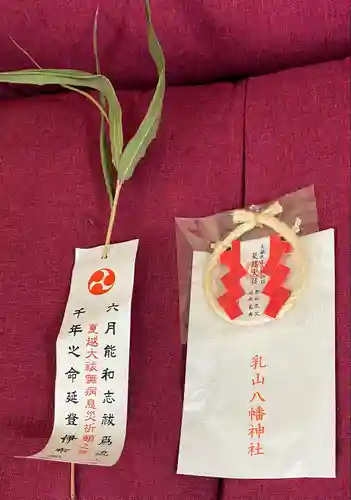 六月能和志祓爲流
夏越大祓無病息災祈願之
千年之命延登伊布
夏越大祓
乳山八幡神社